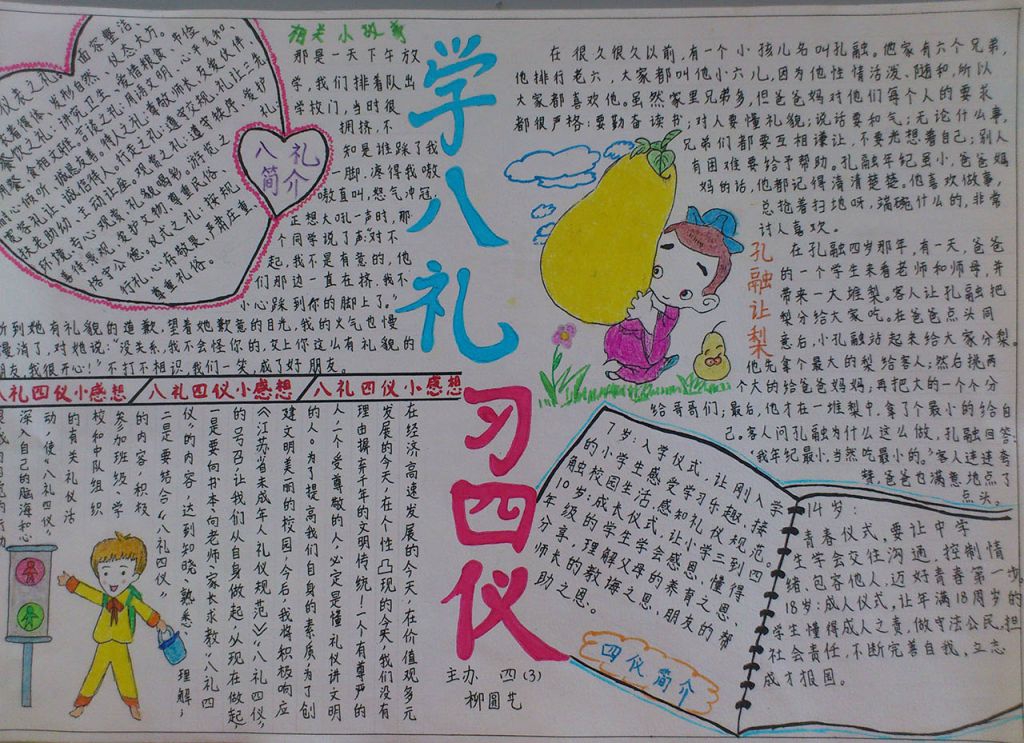 学八礼
习四仪
主办 四(3)
柳圆艺
八礼
简介
面容整洁、
衣着得体、发形自然、仪态大方。
仪表之礼:
餐饮之礼:讲究卫生、爱惜粮食、节俭
用餐、食相文雅。言谈之礼:用语文明、心平气和、
耐心倾听、诚恳友善。待人之礼:尊敬师长、友爱伙伴、
宽容礼让、诚信待人。行走之礼:遵守交规、礼让三先、
扶老助幼、主动让座。观赏之礼:遵守秩序、爱护
环境、专心观赏、礼貌喝彩。游览之
善待景观、爱护文物、尊重民俗、
恪守公德。仪式之礼:按规
行礼、心存敬畏、严肃庄重、
尊重礼俗。
那是一天下午放
学,我们排着队出
学校门,当时很
拥挤,不
知是谁踩了我
一脚,疼得我嗷
嗷直叫,怒气冲冠,
正想大吼一声时,那
个同学说了声:“对不
起,我不是有意的,他
们那边一直在挤,我不
小心踩到你的脚上了。”
听到她有礼貌的道歉,望着她歉意的目光,我的火气也慢
慢消了,对她说:“没关系,我不会怪你的,交上你这么有礼貌的
朋友,我很开心!”不打不相识,我们一笑,成了好朋友。
八礼四仪小感想
八礼四仪小感想
八礼四仪小感想
在经济高速发展的今天,在价值观多元
发展的今天,在个性凸现的今天,我们没有
理由摒弃千年的文明传统!一个有尊严的
人,一个受尊敬的人,必定是懂礼仪讲文明
的人。为了提高我们自身的素质,为了创
建文明美丽的校园,今后,我将积极响应
《江苏省未成年人礼仪规范》“八礼四仪”
的号召,让我们从自身做起,从现在做起,
一是要向书本、向老师、家长求教“八礼四
仪”的内容,达到知晓、熟悉、理解;
二是要结合“八礼四仪”
的内容,积极
参加班级、学
校和中队组织
的有关礼仪活
动,使“八礼四仪”
深入自己的脑海和心
在很久很久以前,有一个小孩儿名叫孔融。他家有六个兄弟,
他排行老六,大家都叫他小六儿,因为他性情活泼、随和,所以
大家都喜欢他。虽然家里兄弟多,但爸爸妈对他们每个人的要求
都很严格:要勤奋读书;对人要懂礼貌;说话要和气;无论什么事,
兄弟们都要互相谦让,不要光想着自己;别人
有困难要给予帮助。孔融年纪虽小,爸爸妈
妈的话,他都记得清清楚楚。他喜欢做事,
总抢着扫地呀,端碗什么的,非常
讨人喜欢。
孔融让梨
在孔融四岁那年,有一天,爸爸
的一个学生来看老师和师母,并
带来一大堆梨。客人让孔融把
梨分给大家吃。在爸爸点头同
意后,小孔融站起来给大家分梨。
他先拿个最大的梨给客人;然后挑两
个大的给爸爸妈妈;再把大的一个个分
给哥哥们;最后,他才在一堆梨中,拿了个最小的给自
己。客人问孔融为什么这么做,孔融回答:
“我年纪最小,当然吃最小的。”客人连连夸
赞,爸爸也满意地点了
点头。
7岁:入学仪式,让刚入学
的小学生感受学习乐趣,接
触校园生活,感知礼仪规范。
10岁:成长仪式,让小学三到四
年级的学生学会感恩,懂得
分享,理解父母的养育之恩、
师长的教诲之恩、朋友的帮
助之恩。
四仪简介
14岁:
青春仪式,要让中学
生学会交往沟通,控制情
绪、包容他人,迈好青春第一步。
18岁:成人仪式,让年满18周岁的
学生懂得成人之责,做守法公民,担
社会责任,不断完善自我,立志
成才报国。